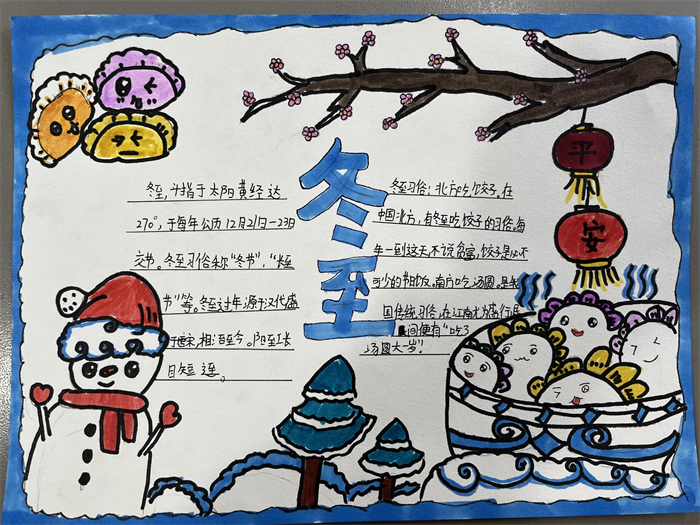 冬至
平
安
冬至,斗指于太阳黄经达
270°,于每年公历12月21日—23日
交节。冬至习俗称“冬节”,“长至
节”等。冬至过年源于汉代盛
于宋,相沿至今。阳至长
日短
冬至习俗:北方吃饺子。在
中国北方,有冬至吃饺子的习俗。每
年一到这天不论贫富,饺子是必不
可少的节日饭。南方吃汤圆,是
国传统习俗,在江南尤盛行民
间便有“吃了
汤圆大一岁”。